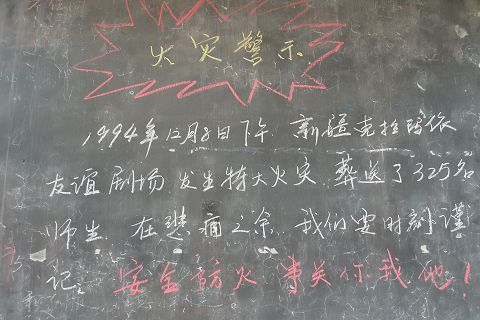 火灾警示
1994年12月8日下午 新疆克拉玛依
友谊剧场 发生特大火灾 葬送了325名
师生 在悲痛之余 我们要时刻谨
记. 安全防火 事关你我他！